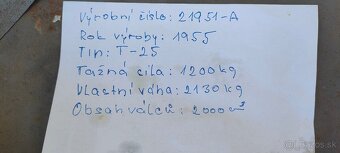 Výrobní číslo: 21951-A
Rok výroby: 1955
Tip: T-25
Tažná cila: 1200kg
Vlastní váha: 2130kg
Obsah válců: 2000cm³
bazos.sk